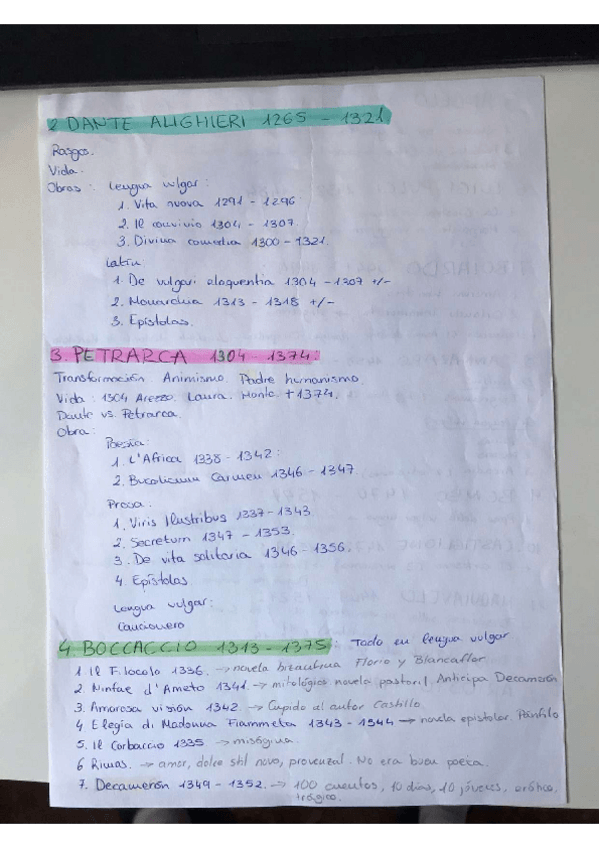 2 DANTE ALIGHIERI 1265 - 1321
Rasgos.
Vida.
Obras : Lengua vulgar :
1. Vita nuova 1291 - 1296
2. Il convivio 1304 - 1307.
3. Divina comedia 1300 - 1321.
Latín:
1. De vulgari eloquentia 1304 - 1307 +/-
2. Monarchia 1313 - 1318 +/-
3. Epístolas.
3. PETRARCA 1304 - 1374.
Transformación. Animismo. Padre humanismo.
Vida : 1304 Arezzo. Laura. Monte. +1374.
Dante vs. Petrarca.
Obra :
Poesía:
1. L'Africa 1338 - 1342 :
2. Bucolicum Carmen 1346 - 1347
Prosa :
1. Viris Ilustribus 1337 - 1343
2. Secretum 1347 - 1353.
3. De vita solitaria 1346 - 1356.
4. Epístolas
Lengua vulgar:
Cancionero
4. BOCCACCIO 1313 - 1375 : Todo en lengua vulgar
1. Il Filocolo 1336. → novela bizantina Florio y Blancaflor
2. Ninfae d'Ameto 1341. → mitológica. novela pastoril. Anticipa Decamerón
3. Amorosa visión 1342. → Cupido al autor Castillo.
4 Elegia di Madonna Fiammeta 1343 - 1344 → novela epistolar. Pánfilo
5. Il Corbaccio 1335 → misógina.
6 Rimas. → amor, dolce stil novo, provenzal. No era buen poeta.
7. Decamerón 1349 - 1352. → 100 cuentos, 10 días, 10 jóvenes, erótico,
trágico.